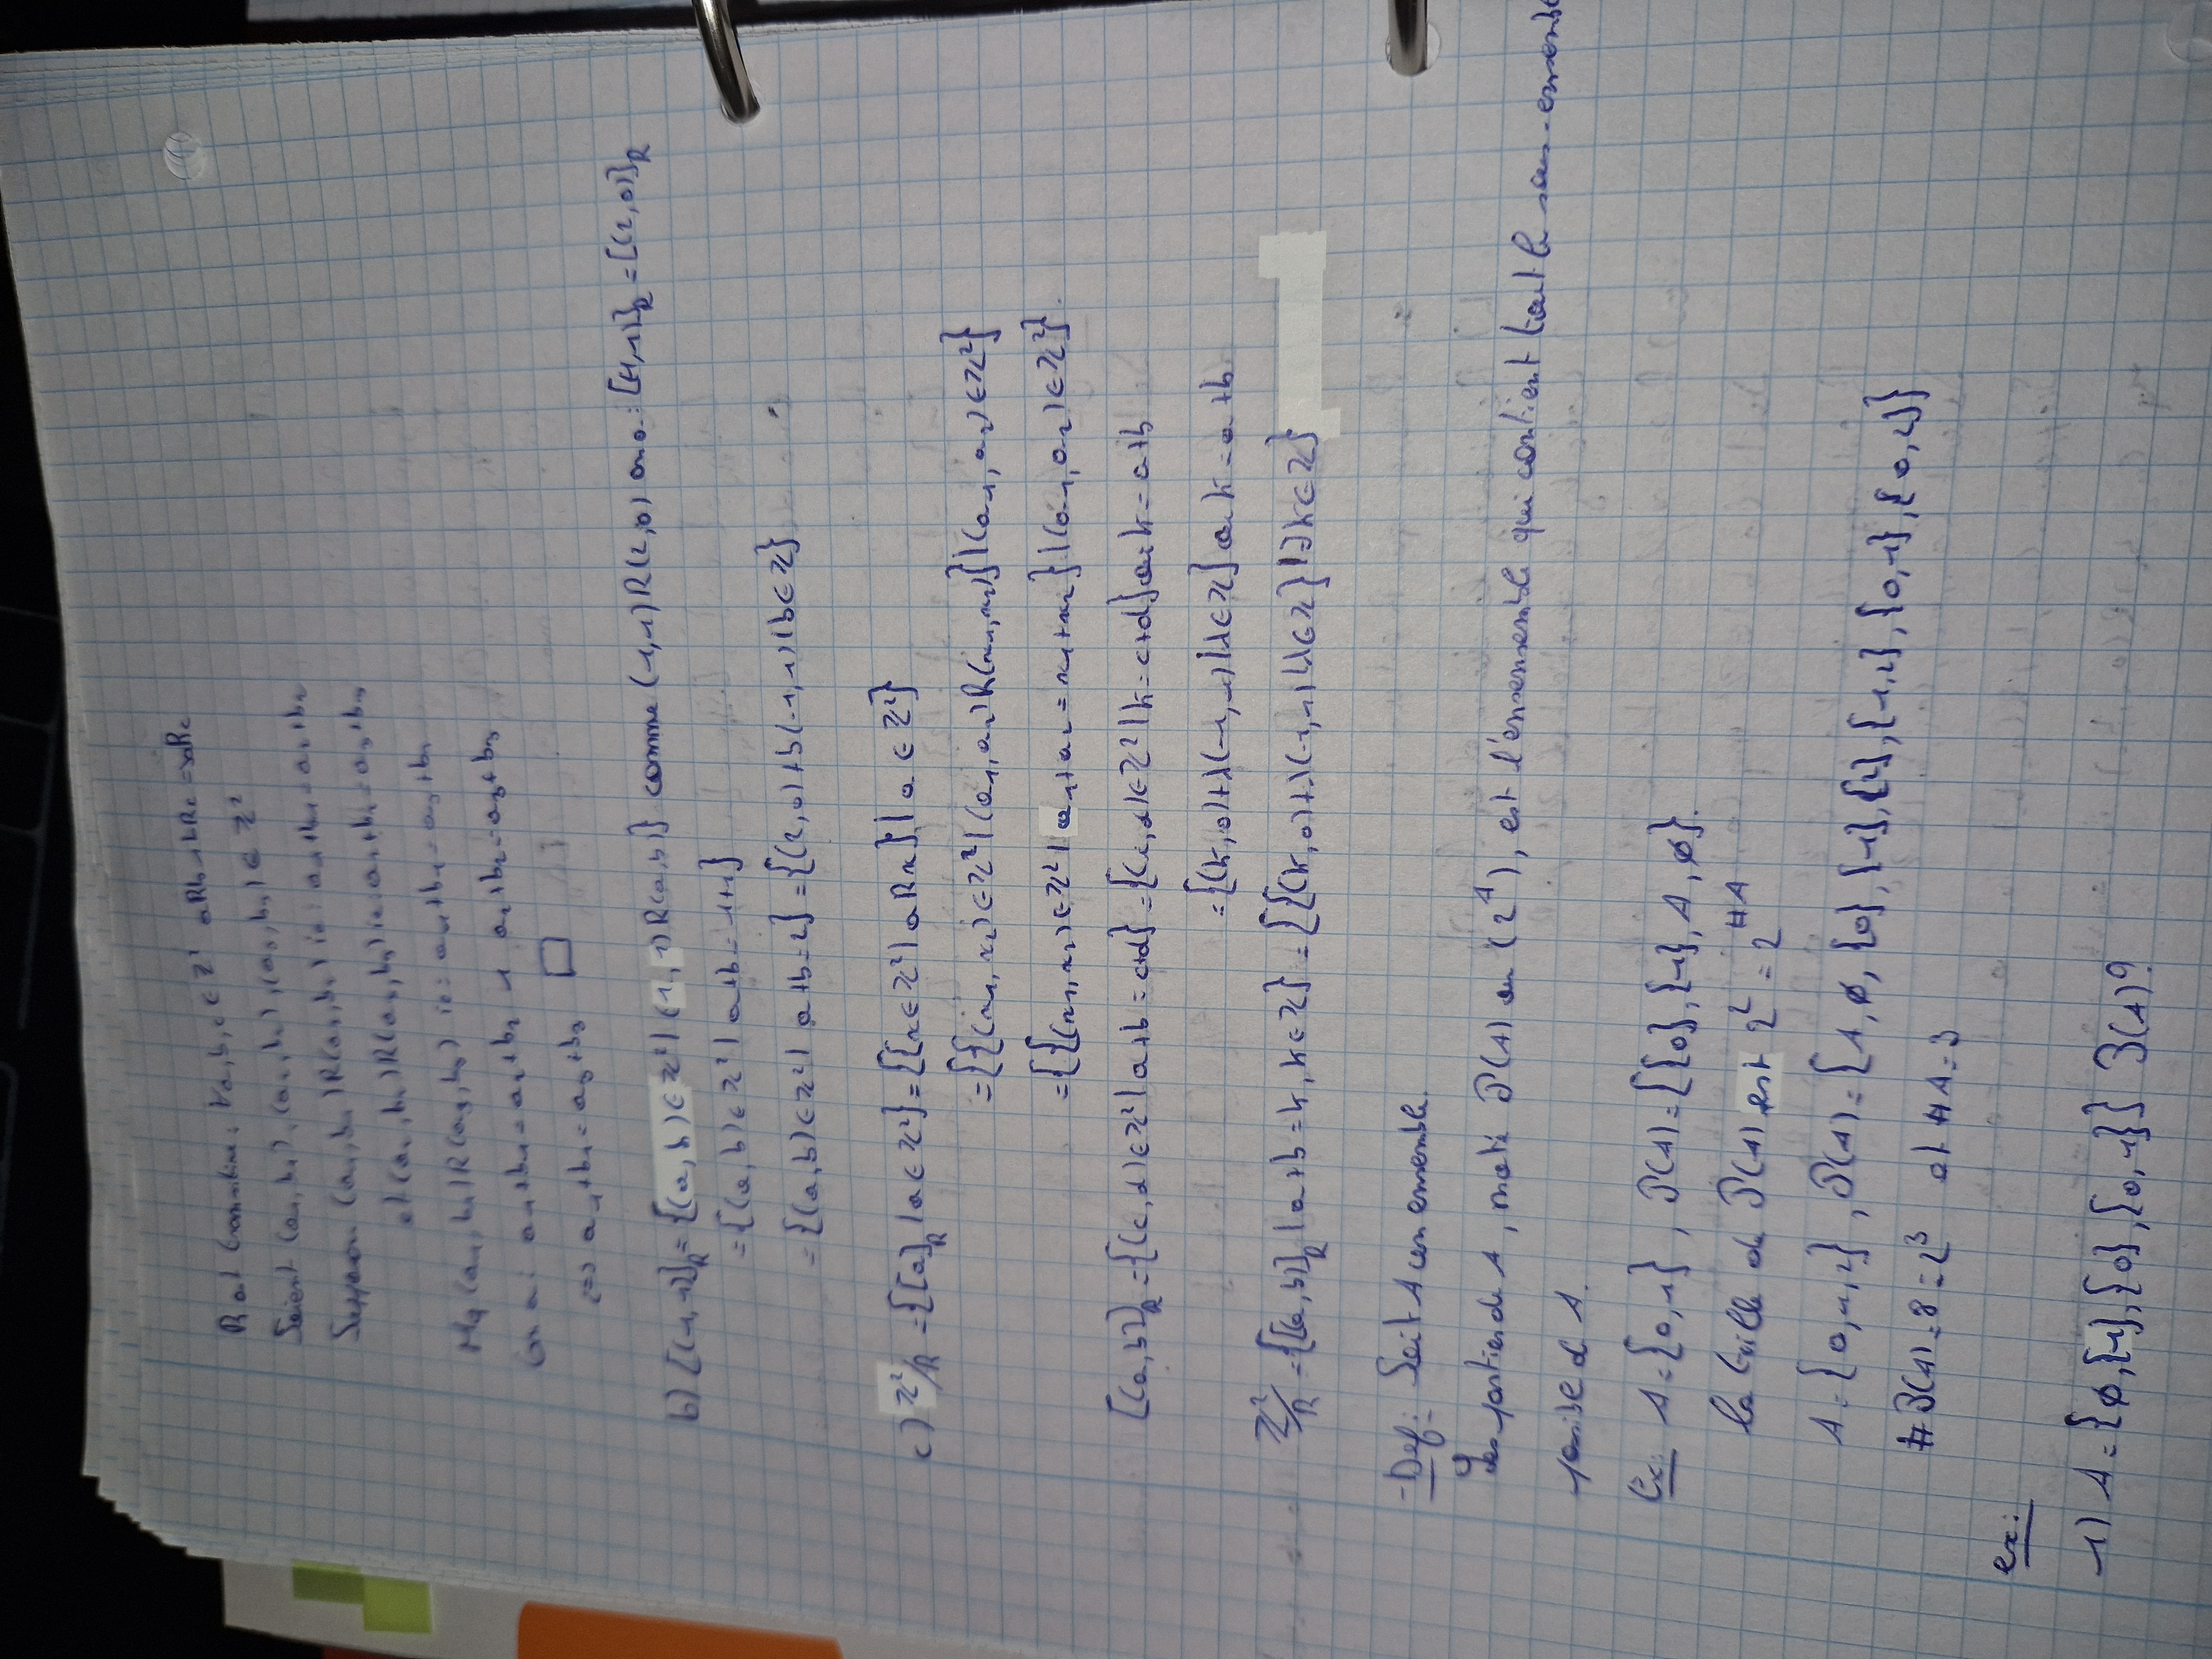 R est transitive: ∀a,b,c ∈ Z² aRb ∧ bRc => aRc
Soient (a₁,b₁), (a₂,b₂), (a₃,b₃) ∈ Z²
Supposon (a₁,b₁)R(a₂,b₂) ie: a₁+b₁=a₂+b₂
et (a₂,b₂)R(a₃,b₃) ie: a₂+b₂=a₃+b₃
Mq (a₁,b₁)R(a₃,b₃) ie: a₁+b₁=a₃+b₃
On a: a₁+b₁=a₂+b₂ ∧ a₂+b₂=a₃+b₃
<=> a₁+b₁=a₃+b₃ □
b) [(1,1)]_R = {(a,b) ∈ Z² | (1,1)R(a,b)} comme (1,1)R(2,0) on a: [(1,1)]_R = [(2,0)]_R
= {(a,b) ∈ Z² | a+b=1+1}
= {(a,b) ∈ Z² | a+b=2} = {(2,0)+b(-1,1) | b ∈ Z}
c) Z²/R = {[a]_R | a ∈ Z²} = {{x ∈ Z² | aRx} | a ∈ Z²}
= {{(x₁,x₂) ∈ Z² | (a₁,a₂)R(x₁,x₂)} | (a₁,a₂) ∈ Z²}
= {{(x₁,x₂) ∈ Z² | a₁+a₂=x₁+x₂} | (a₁,a₂) ∈ Z²}.
[(a,b)]_R = {(c,d) ∈ Z² | a+b=c+d} = {(c,d) ∈ Z² | k=c+d} où k=a+b
= {(k,0)+λ(-1,1) | λ ∈ Z} où k=a+b
Z²/R = {[(a,b)]_R | a+b=k, k ∈ Z} = {{(k,0)+λ(-1,1) | λ ∈ Z} | ∃k ∈ Z}
-Def: Soit A un ensemble.
Les parties de A, noté P(A) ou (2^A), est l'ensensemble qui contient tout le sous-ensemble
possible d A.
Ex: A={0,1}, P(A)={{0},{1},A,ø}.
la taille de P(A) est 2² = 2^#A
A={0,1,2}, P(A)={A,ø,{0},{1},{2},{1,2},{0,1},{0,2}}
#P(A)=8=2³ et #A=3
ex:
1) A={ø,{1},{0},{0,1}} P(A)?